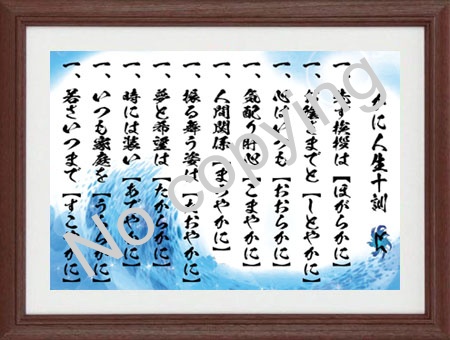 かに人生十訓
一、先ず挨拶は【ほがらかに】
一、までと【しとやかに】
一、心はいつも【おおらかに】
一、気配り肝心【こまやかに】
一、人間関係【まろやかに】
一、振る舞う姿は【たおやかに】
一、夢と希望は【たからかに】
一、時には装い【あでやかに】
一、いつも家庭を【うららかに】
一、若さいつまで【すこやかに】
No copying